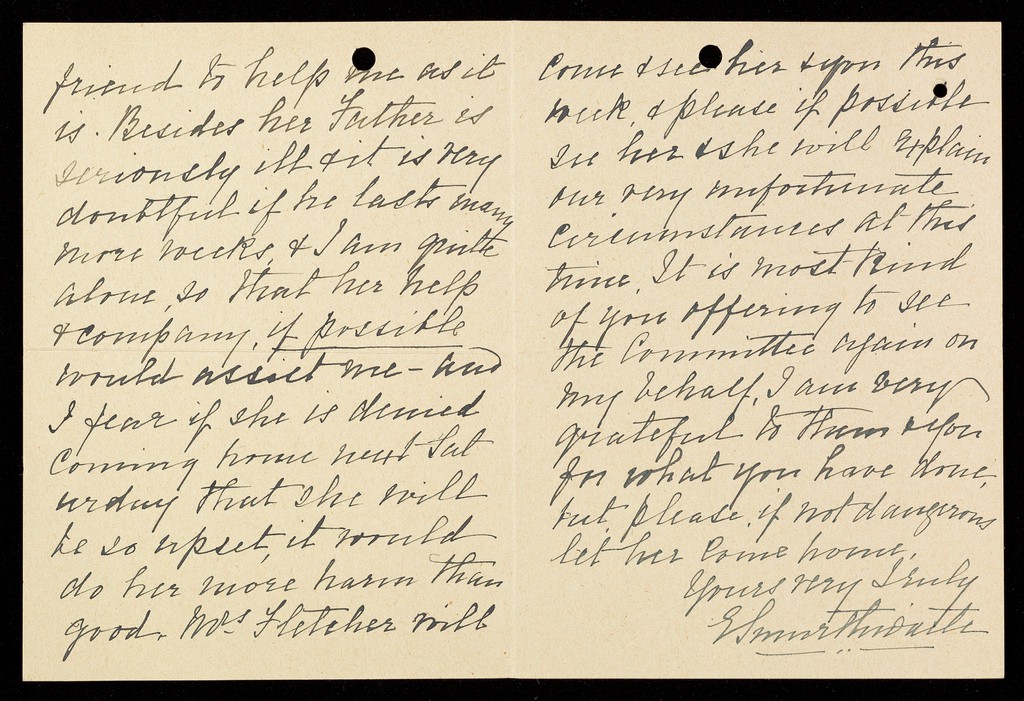 friend to help me as it
is. Besides her Father is
seriously ill & it is very
doubtful if he lasts many
more weeks, & I am quite
alone, so that her help
& company, if possible
would assist me – and
I fear if she is denied
coming home next Sat
urday that she will
be so upset, it would
do her more harm than
good. Mrs Fletcher will
come & see her & you this
week, & please if possible
see her & she will explain
our very unfortunate
circumstances at this
time. It is most kind
of you offering to see
the Committee again on
my behalf, I am very
grateful to them & you
for what you have done,
but, please, if not dangerous
let her come home.
Yours very truly
E Smurthwaite